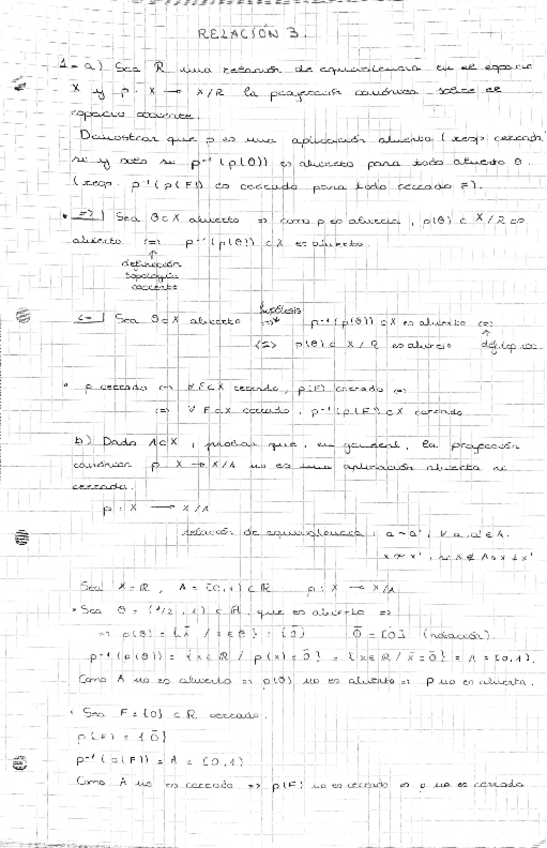 RELACIÓN 3.
1- a) Sea R una relación de equivalencia en el espacio
X y p: X → X/R la proyección canónica sobre el
espacio cociente.
Demostrar que p es una aplicación abierta (resp. cerrada)
si y solo si p⁻¹(p(θ)) es abierto para todo abierto θ.
(resp. p⁻¹(p(F)) es cerrado para todo cerrado F).
• ⇒| Sea θ⊂X abierto ⇒ como p es abierta, p(θ) ⊂ X/R es
abierto ⇔ p⁻¹(p(θ)) ⊂ X es abierto.
↑
definición
topología
cociente
⇐| Sea θ⊂X abierto ⇒ p⁻¹(p(θ)) ⊂ X es abierto ⇔
hipótesis
⇔ p(θ) ⊂ X/R es abierto
↑
def. top. coc.
• p cerrada ⇔ ∀F⊂X cerrado, p(F) cerrado ⇔
⇔ ∀F⊂X cerrado, p⁻¹(p(F)) ⊂ X cerrado
b) Dado A⊂X, probar que, en general, la proyección
canónica p: X → X/A no es una aplicación abierta ni
cerrada.
p: X → X/A
relación de equivalencia: a~a', ∀ a, a' ∈ A.
Sea X=R, A=[0,1) ⊂ R p: X → X/A
• Sea θ = (1/2, 1) ⊂ R, que es abierto ⇒
⇒ p(θ) = {x̄ / x∈θ} = {0̄} 0̄ = [0] (notación).
p⁻¹(p(θ)) = {x∈R / p(x)=0̄} = {x∈R / x̄=0̄} = A = [0,1).
Como A no es abierto ⇒ p(θ) no es abierto ⇒ p no es abierta.
• Sea F={0} ⊂ R cerrado.
p(F) = {0̄}
p⁻¹(p(F)) = A = [0,1)
Como A no es cerrado ⇒ p(F) no es cerrado ⇒ p no es cerrada